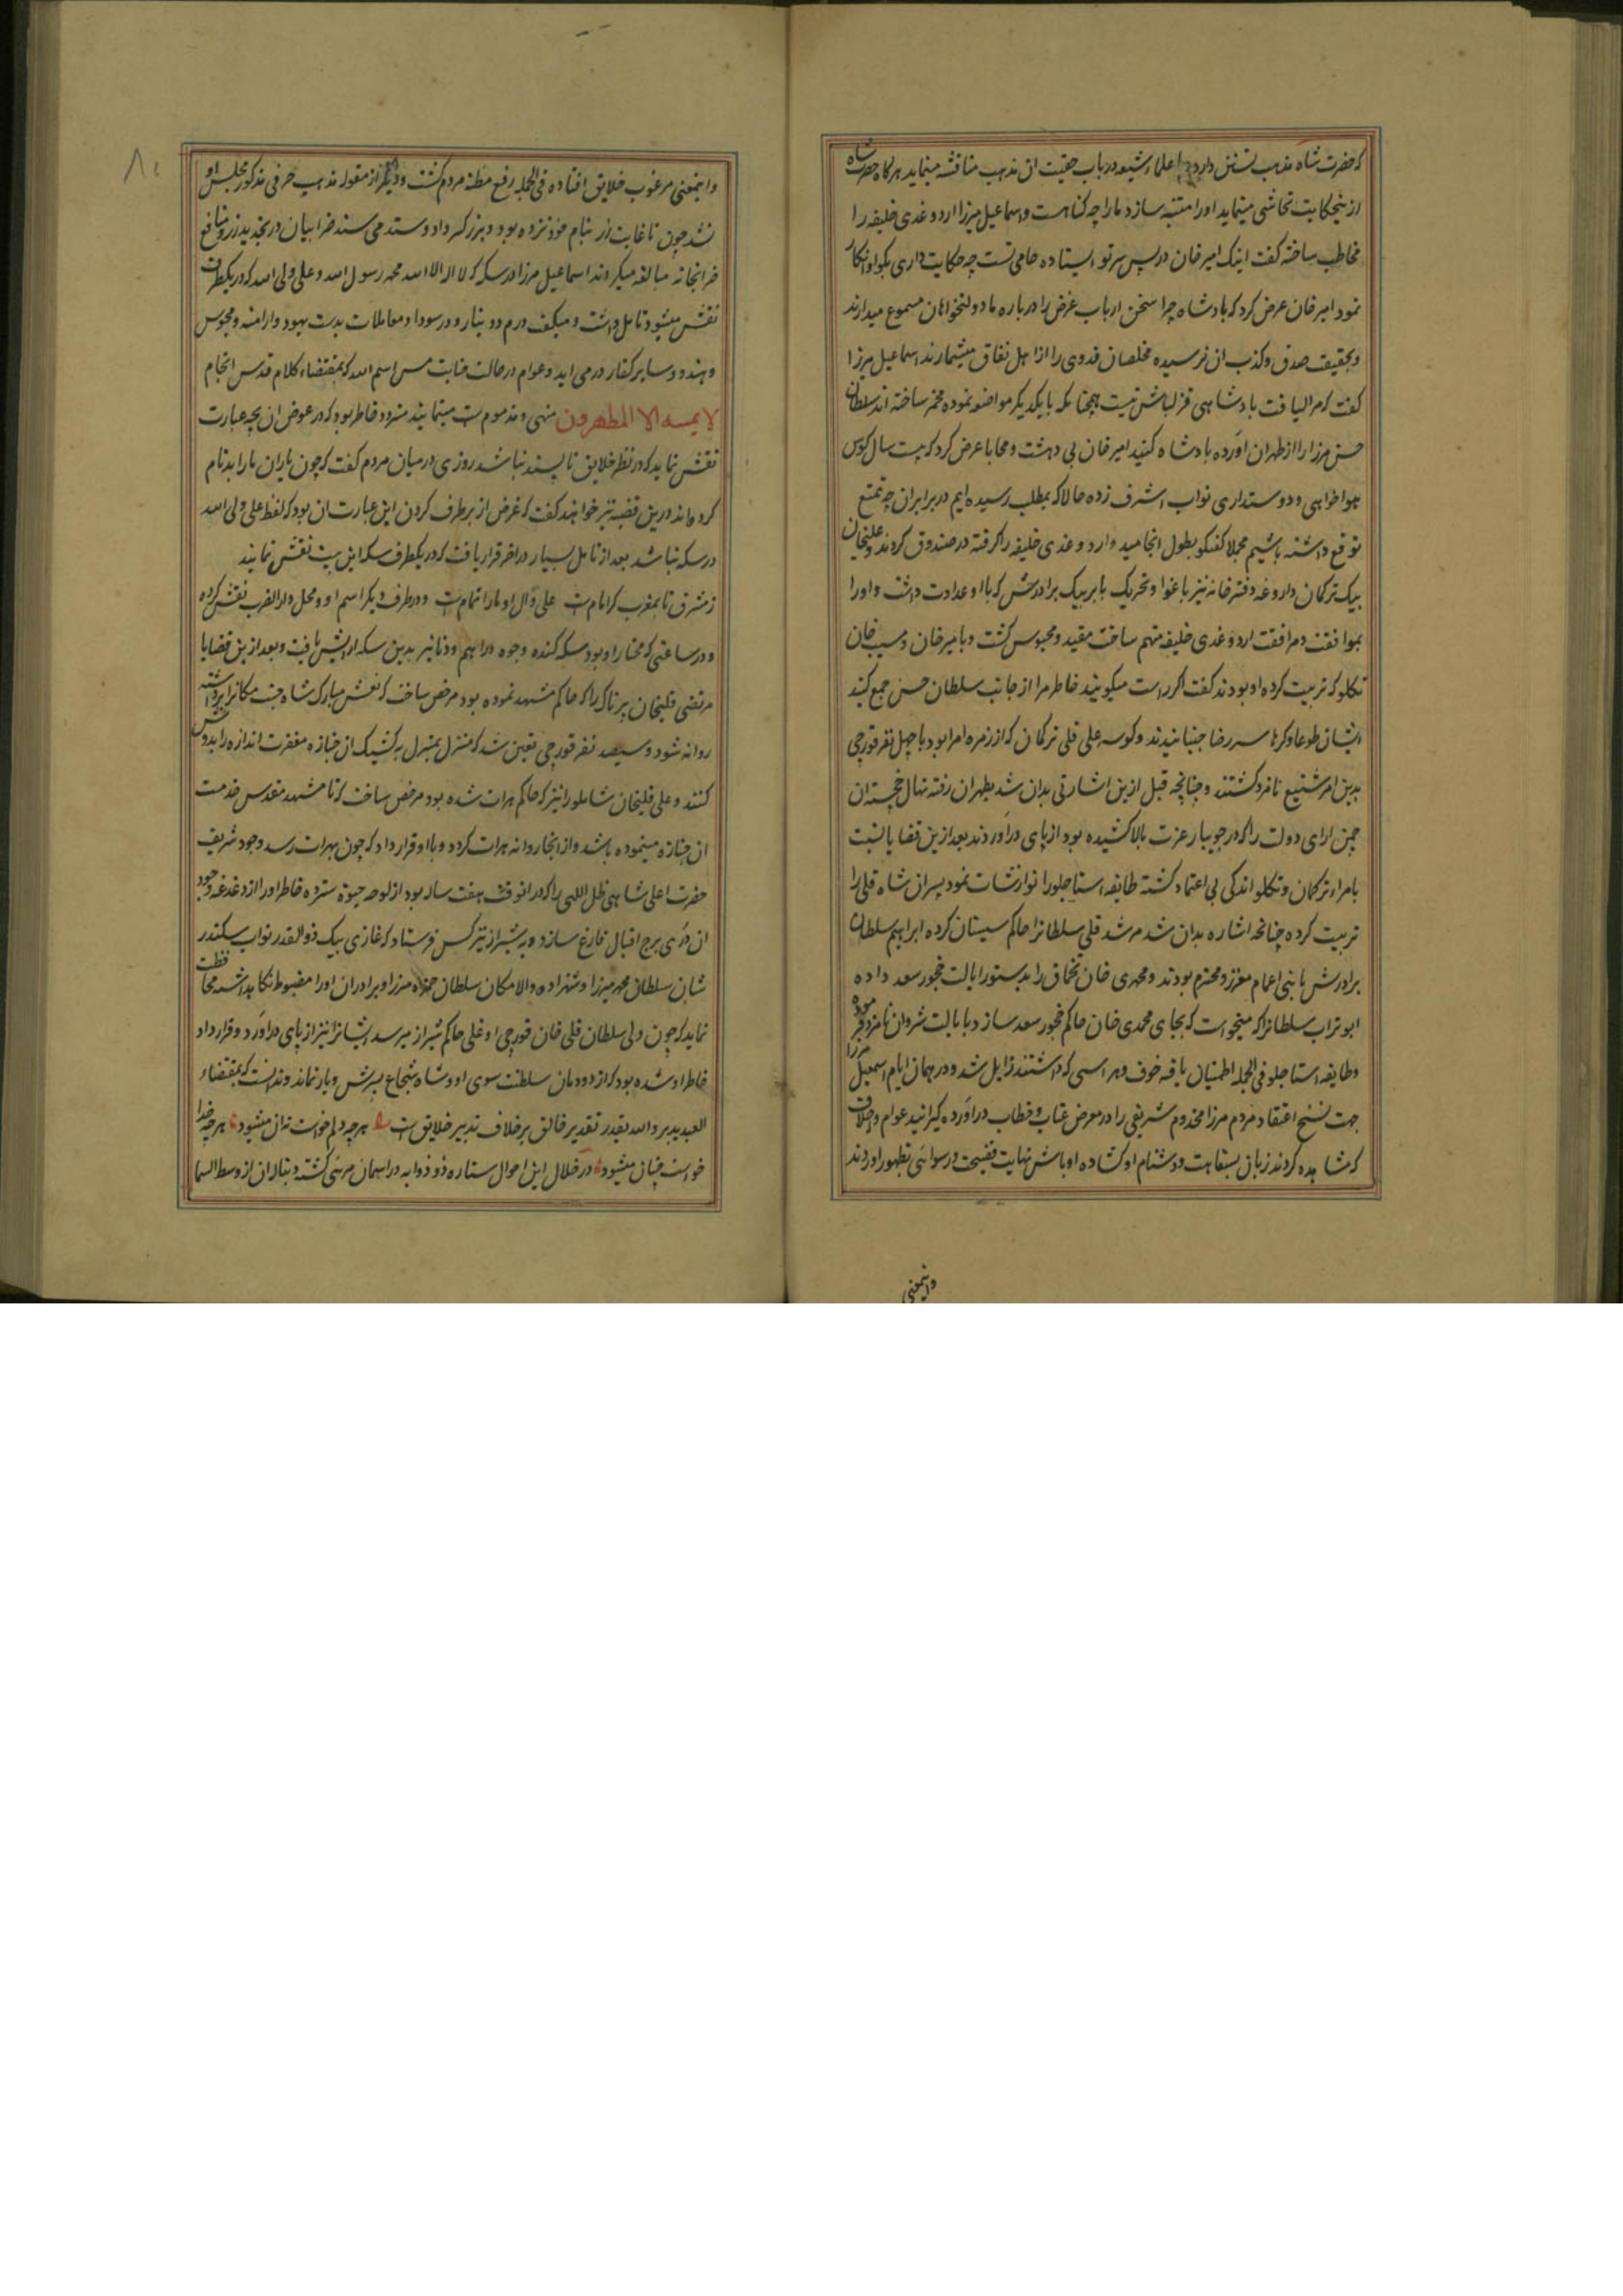 که حضرت شاه مذهب تسنن دارد و با علماء شیعه در باب حقیت ان مذهب مناقشه مینماید هرکاه حضرت شاه
از ینحکایت تحاشی مینماید او را متنبه سازد ما را چه کناهست و اسماعیل میرزا اردوغدی خلیفه را
مخاطب ساخته کفت اینک امیر خان در پس سر تو ایستاده حامی تست چه حکایت داری بکو او انکار
نمود امیر خان عرض کرد که بادشاه چرا سخن ارباب غرض را در باره ما دولتخواهان مسموع میدارند
و بحقیقت صدق و کذب ان نرسیده مخلصان فدوی را از اهل نفاق میشمارند اسماعیل میرزا
کفت که مرا لیاقت بادشاهی قزلباش نیست همچنانکه با یکدیکر مواضعه نموده مخمر ساخته اند سلطان
حسن مرزا را از طهران اورده بادشاه کنید امیر خان بی دهشت و محابا عرض کرد که بیست سال کوس
هواخواهی و دوستداری نواب اشرف زده حالا که بمطلب رسیده ایم در برابر ان چه تمتع
توقع داشته باشیم مجملا کفتکو بطول انجامید و اردوغدی خلیفه را کرفته در صندوق کردند و علیخان
بیک ترکمان داروغه دفترخانه نیز باغوا و تحریک بابر بیک برادرش که با او عداوت داشت و او را
بموافقت و مرافقت اردوغدی خلیفه متهم ساخت مقید و محبوس کشت و با میر خان و مسیب خان
تکلو که تربیت کرده او بودند کفت اکر راست میکویید خاطر مرا از جانب سلطان حسن جمع کنید
ایشان طوعا و کرها سر رضا جنبانیدند و کوسه علی قلی ترکمان که از زمره امرا بود با چهل نفر قورچی
بدین امر شنیع نامزد کشتند و چنانچه قبل ازین اشارتی بدان شد بطهران رفته نهال خجسته ان
چمن ارای دولت را که در جویبار عزت بالا کشیده بود از پای دراوردند بعد ازین قضایا نسبت
بامراء ترکمان و تکلو اندکی بی اعتماد کشته طایفه استاجلو را نوازشات نمود پسران شاه قلی را
تربیت کرده چنانچه اشاره بدان شد مرشد قلی سلطانرا حاکم سیستان کرده ابراهیم سلطان
برادرش با بنی اعمام معزز و محترم بودند و محمدی خان تخماق را بدستور ایالت چخور سعد داده
ابوتراب سلطانرا که میخواست که بجای محمدی خان حاکم چخور سعد سازد بایالت شروان نامزد فرموده
و طایفه استاجلو فی الجمله اطمینان یافته خوف و هراسی که داشتند زایل شد و در همان ایام اسمعیل مرزا
جهت نسخ اعتقاد مردم مرزا مخدوم شریفی را در معرض عتاب و خطاب دراورده کیرانید عوام و اجلاف
که مشاهده کردند زبان بسفاهت و دشنام او کشاده اوباش نهایت فضیحت و رسوائی بظهور اوردند
واینمعنی
۸۱
و اینمعنی مرغوب خلایق افتاده فی الجمله رفع مظنه مردم کشت و دیکر از مقوله مذهب حرفی مذکور مجلس او
نشد چون تا غایت زر بنام خود نزده بود و بزر کهر داد و ستد می شد ضرابیان در تجدید زر و منافع
ضرابخانه مبالغه میکردند اسماعیل مرزا در سکه که لا اله الا الله محمد رسول الله و علی ولی الله که در یکطرف
نقش میشود تامل داشت و میکفت درم و دینار و در سودا و معاملات بدست یهود و ارامنه و مجوس
و هندو و سایر کفار در می اید و عوام در حالت جنابت مس اسم الله که بمقتضاء کلام قدس انجام
لا یمسه الا المطهرون منهی و مذمومست مینمایند متردد خاطر بود که در عوض ان بچه عبارت
نقش نماید که در نظر خلایق ناپسند نباشد روزی در میان مردم کفت که چون یاران ما را بدنام
کرده اند درین قضیه نیز خواهند کفت که غرض از برطرف کردن این عبارت ان بود که لفظ علی ولی الله
در سکه نباشد بعد از تامل بسیار در اخر قرار یافت که در یکطرف سکه این بیت نقش نمایند
ز مشرق تا بمغرب کر امامست علی و آل او ما را تمامست و در طرف دیکر اسم او و محل دار الضرب نقش کرده
و در ساعتی که مختار او بود سکه کنده وجوه دراهم و دنانیر بدین سکه ارایش یافت و بعد ازین قضایا
مرتضی قلیخان پرناک را که حاکم مشهد نموده بود مرخص ساخت که نعش مبارک شاه جنت مکانرا برداشته
روانه شود و سیصد نفر قورچی تعین شد که منزل بمنزل به کشیک ان جنازه مغفرت اندازه را بدوش
کشند و علی قلیخان شاملو را نیز که حاکم هرات شده بود مرخص ساخت که تا مشهد مقدس خدمت
ان جنازه مینموده باشد و از انجا روانه هرات کردد و با او قرار داد که چون بهرات رسد وجود شریف
حضرت اعلی شاهی ظل اللهی را که در انوقت هفت ساله بود از لوحه حیوة سترده خاطر او را از دغدغه وجود
ان دری برج اقبال فارغ سازد و به شیراز نیز کس فرستاد که غازی بیک ذوالقدر نواب سکندر
شان سلطان محمد میرزا و شهزاده والا مکان سلطان حمزه مرزا و برادران او را مضبوط نکاهداشته محافظت
نماید که چون ولی سلطان قلی خان قورچی اوغلی حاکم شیراز میرسد ایشانرا نیز از پای دراورد و قرار داد
خاطر او شده بود که از دودمان سلطنت سوی او و شاه شجاع پسرش دیار نماند و ندانست که بمقتضاء
العبد یدبر و الله یقدر تقدیر خالق بر خلاف تدبیر خلایق است هرچه دلم خواست نه ان میشود هرچه خدا
خواست چنان میشود در خلال این احوال ستاره ذو ذوابه در اسمان مرئی کشته دنبال ان از وسط السما